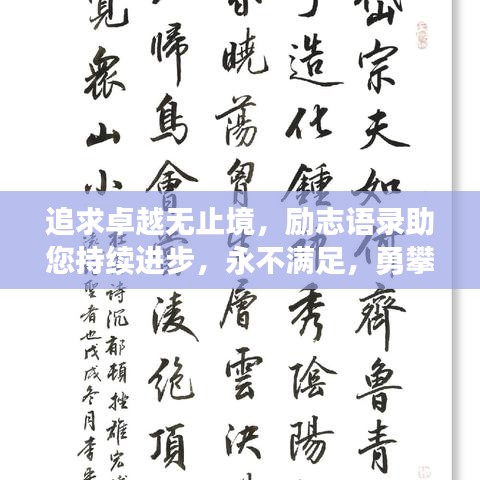 岱宗夫如何齊魯青
了造化鍾神秀陰陽
昏曉蕩胸生層雲決
歸鳥會當凌絕頂
覽衆山小
詩沉郁頓挫雄宏
聖者也戊戌冬月李
追求卓越无止境，励志语录助
您持续进步，永不满足，勇攀